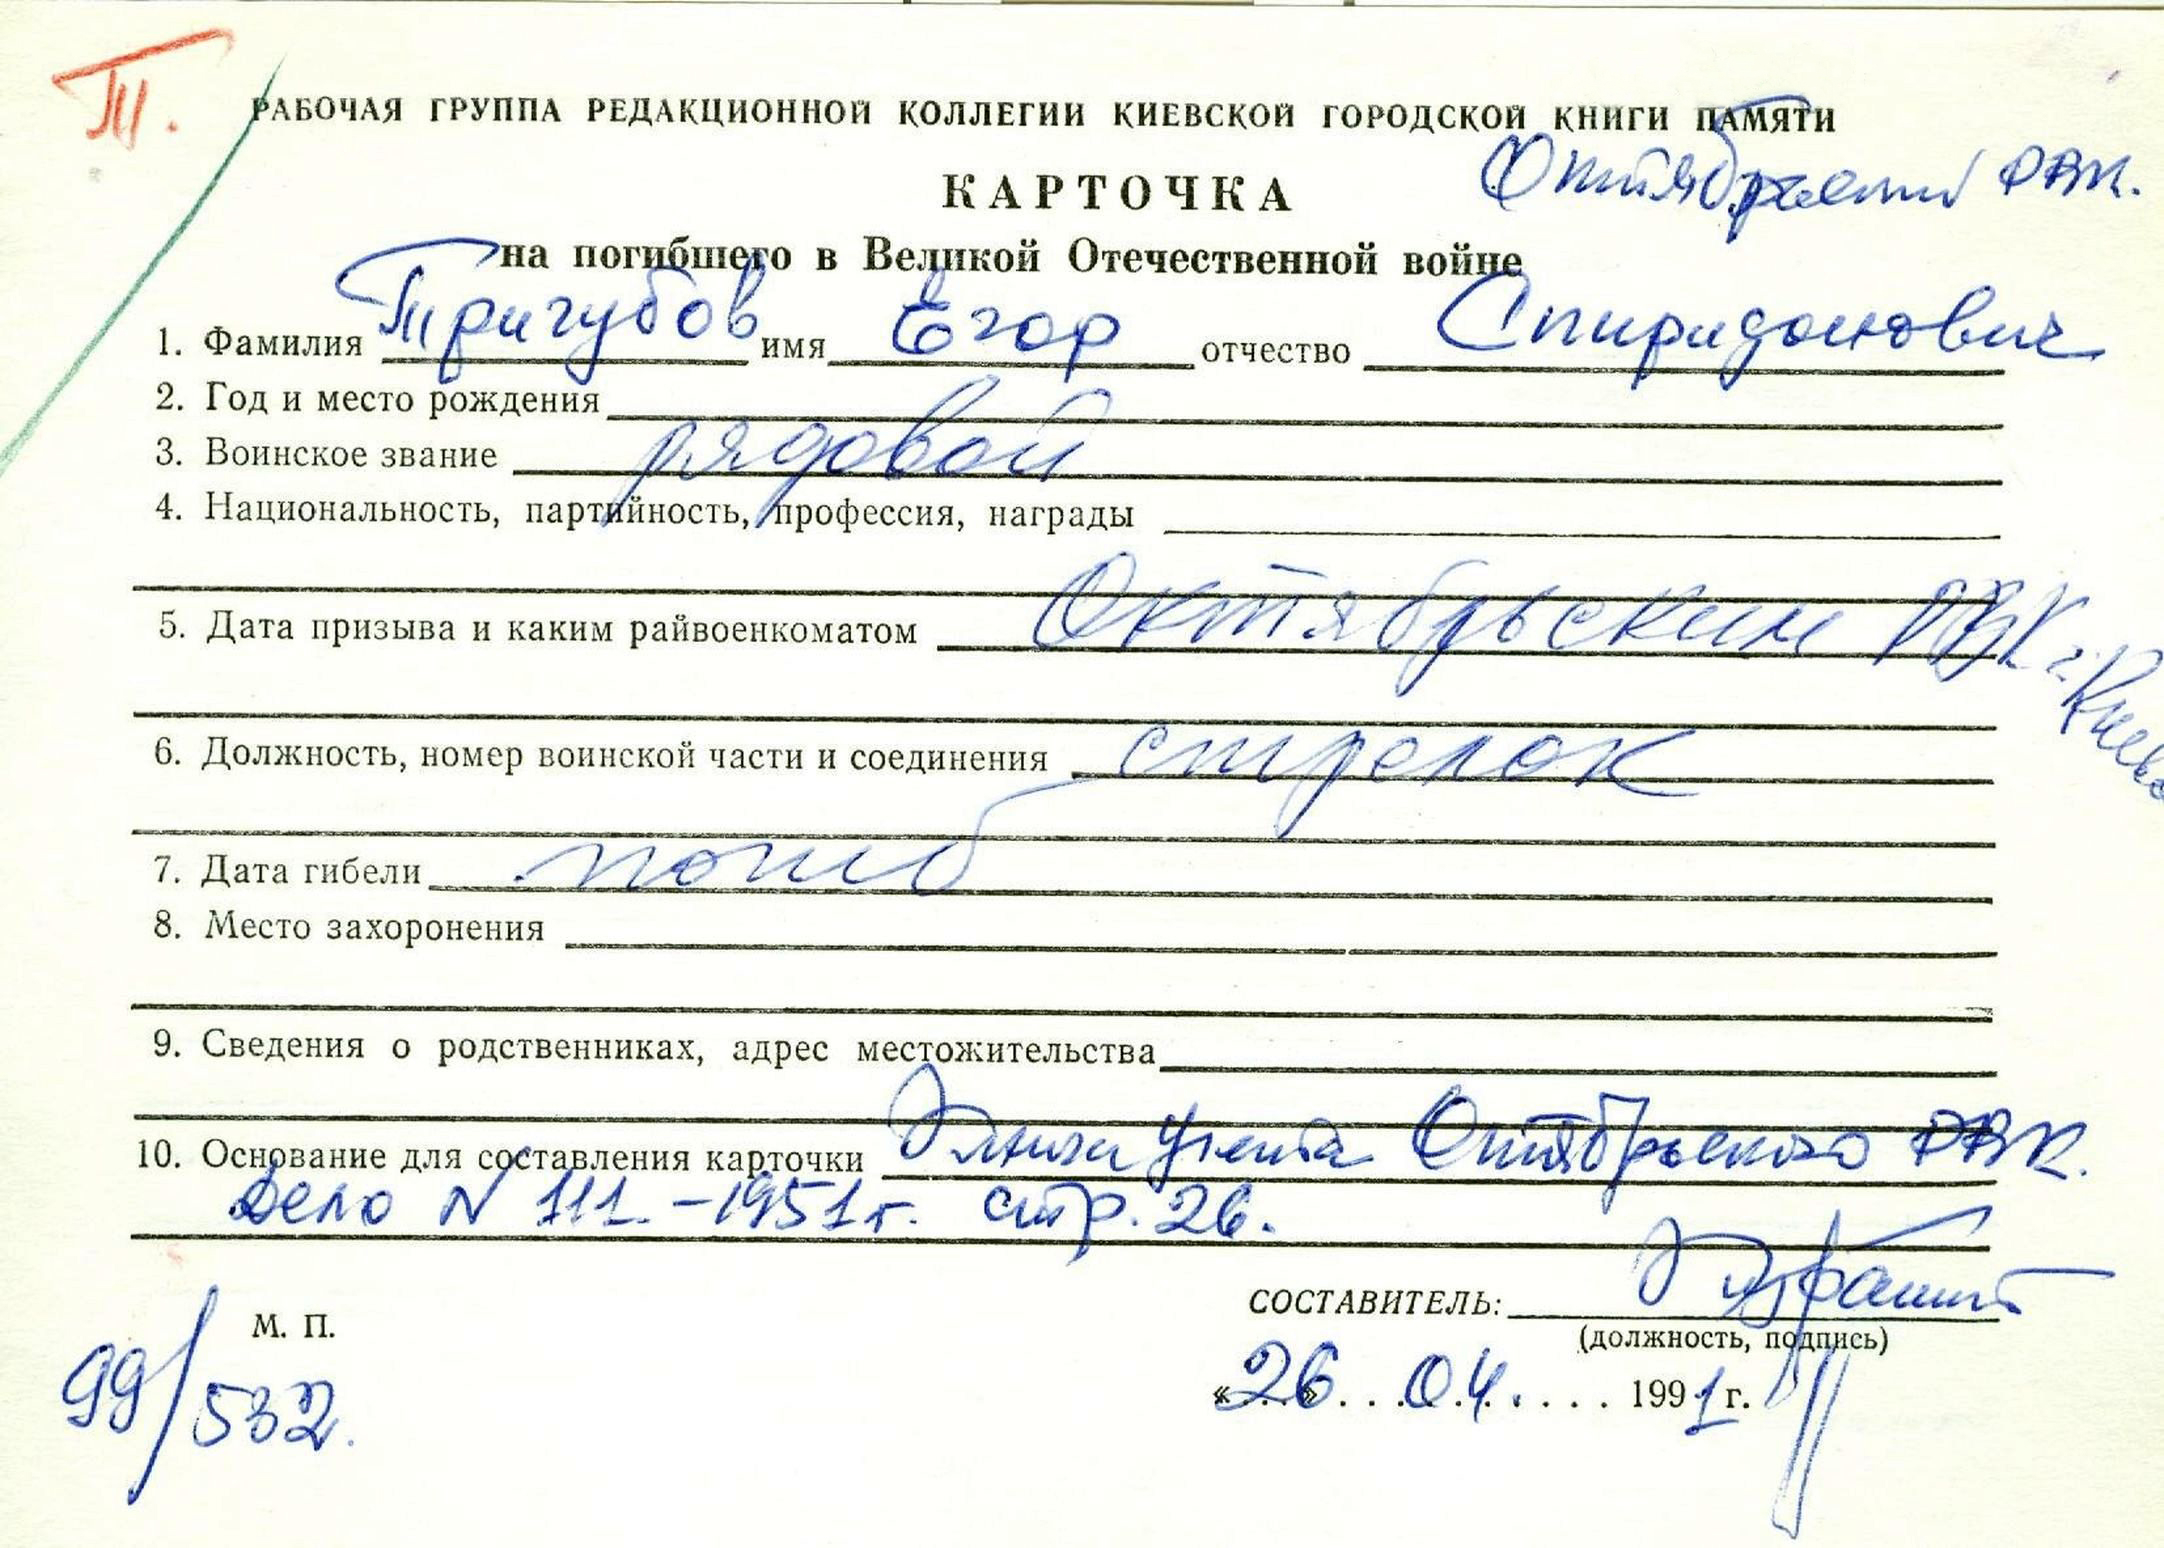 Т.
РАБОЧАЯ ГРУППА РЕДАКЦИОННОЙ КОЛЛЕГИИ КИЕВСКОЙ ГОРОДСКОЙ КНИГИ ПАМЯТИ
Октябрьский РВК.
КАРТОЧКА
на погибшего в Великой Отечественной войне
1. Фамилия Тригубов имя Егор отчество Спиридонович
2. Год и место рождения
3. Воинское звание рядовой
4. Национальность, партийность, профессия, награды
5. Дата призыва и каким райвоенкоматом Октябрьским РВК г. Киева
6. Должность, номер воинской части и соединения стрелок
7. Дата гибели погиб
8. Место захоронения
9. Сведения о родственниках, адрес местожительства
10. Основание для составления карточки Книги учета Октябрьского РВК.
дело N 111. - 1951 г. стр. 26.
СОСТАВИТЕЛЬ:
М. П.
(должность, подпись)
99/532.
«26» 04. 1991 г.